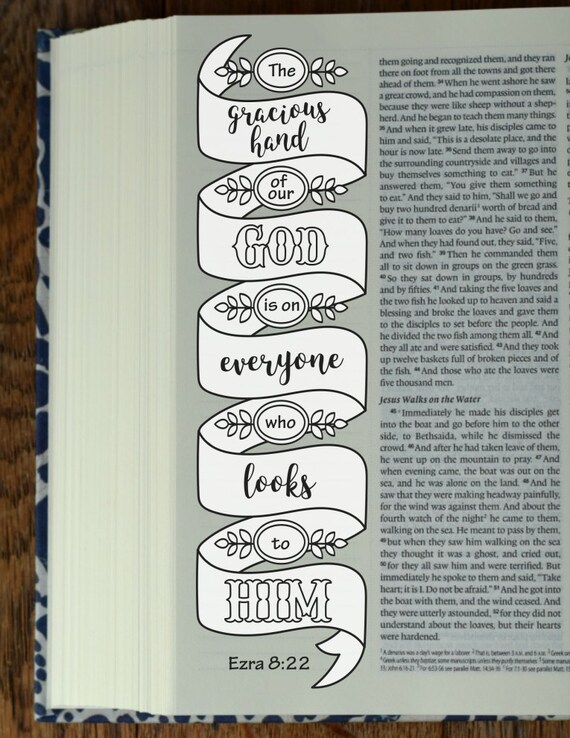 The
gracious
hand
of
our
GOD
is on
everyone
who
looks
to
HIM
Ezra 8:22
them going and recognized them, and they ran
there on foot from all the towns and got there
ahead of them. 34 When he went ashore he saw
a great crowd, and he had compassion on them,
because they were like sheep without a shep-
herd. And he began to teach them many things.
35 And when it grew late, his disciples came to
him and said, "This is a desolate place, and the
hour is now late. 36 Send them away to go into
the surrounding countryside and villages and
buy themselves something to eat." 37 But he
answered them, "You give them something
to eat." And they said to him, "Shall we go and
buy two hundred denarii¹ worth of bread and
give it to them to eat?" 38 And he said to them,
"How many loaves do you have? Go and see."
And when they had found out, they said, "Five,
and two fish." 39 Then he commanded them
all to sit down in groups on the green grass.
40 So they sat down in groups, by hundreds
and by fifties. 41 And taking the five loaves and
the two fish he looked up to heaven and said a
blessing and broke the loaves and gave them
to the disciples to set before the people. And
he divided the two fish among them all. 42 And
they all ate and were satisfied. 43 And they took
up twelve baskets full of broken pieces and of
the fish. 44 And those who ate the loaves were
five thousand men.
Jesus Walks on the Water
45 Immediately he made his disciples get
into the boat and go before him to the other
side, to Bethsaida, while he dismissed the
crowd. 46 And after he had taken leave of them,
he went up on the mountain to pray. 47 And
when evening came, the boat was out on the
sea, and he was alone on the land. 48 And he
saw that they were making headway painfully,
for the wind was against them. And about the
fourth watch of the night² he came to them,
walking on the sea. He meant to pass by them,
49 but when they saw him walking on the sea
they thought it was a ghost, and cried out,
50 for they all saw him and were terrified. But
immediately he spoke to them and said, "Take
heart; it is I. Do not be afraid." 51 And he got into
the boat with them, and the wind ceased. And
they were utterly astounded, 52 for they did not
understand about the loaves, but their hearts
were hardened.